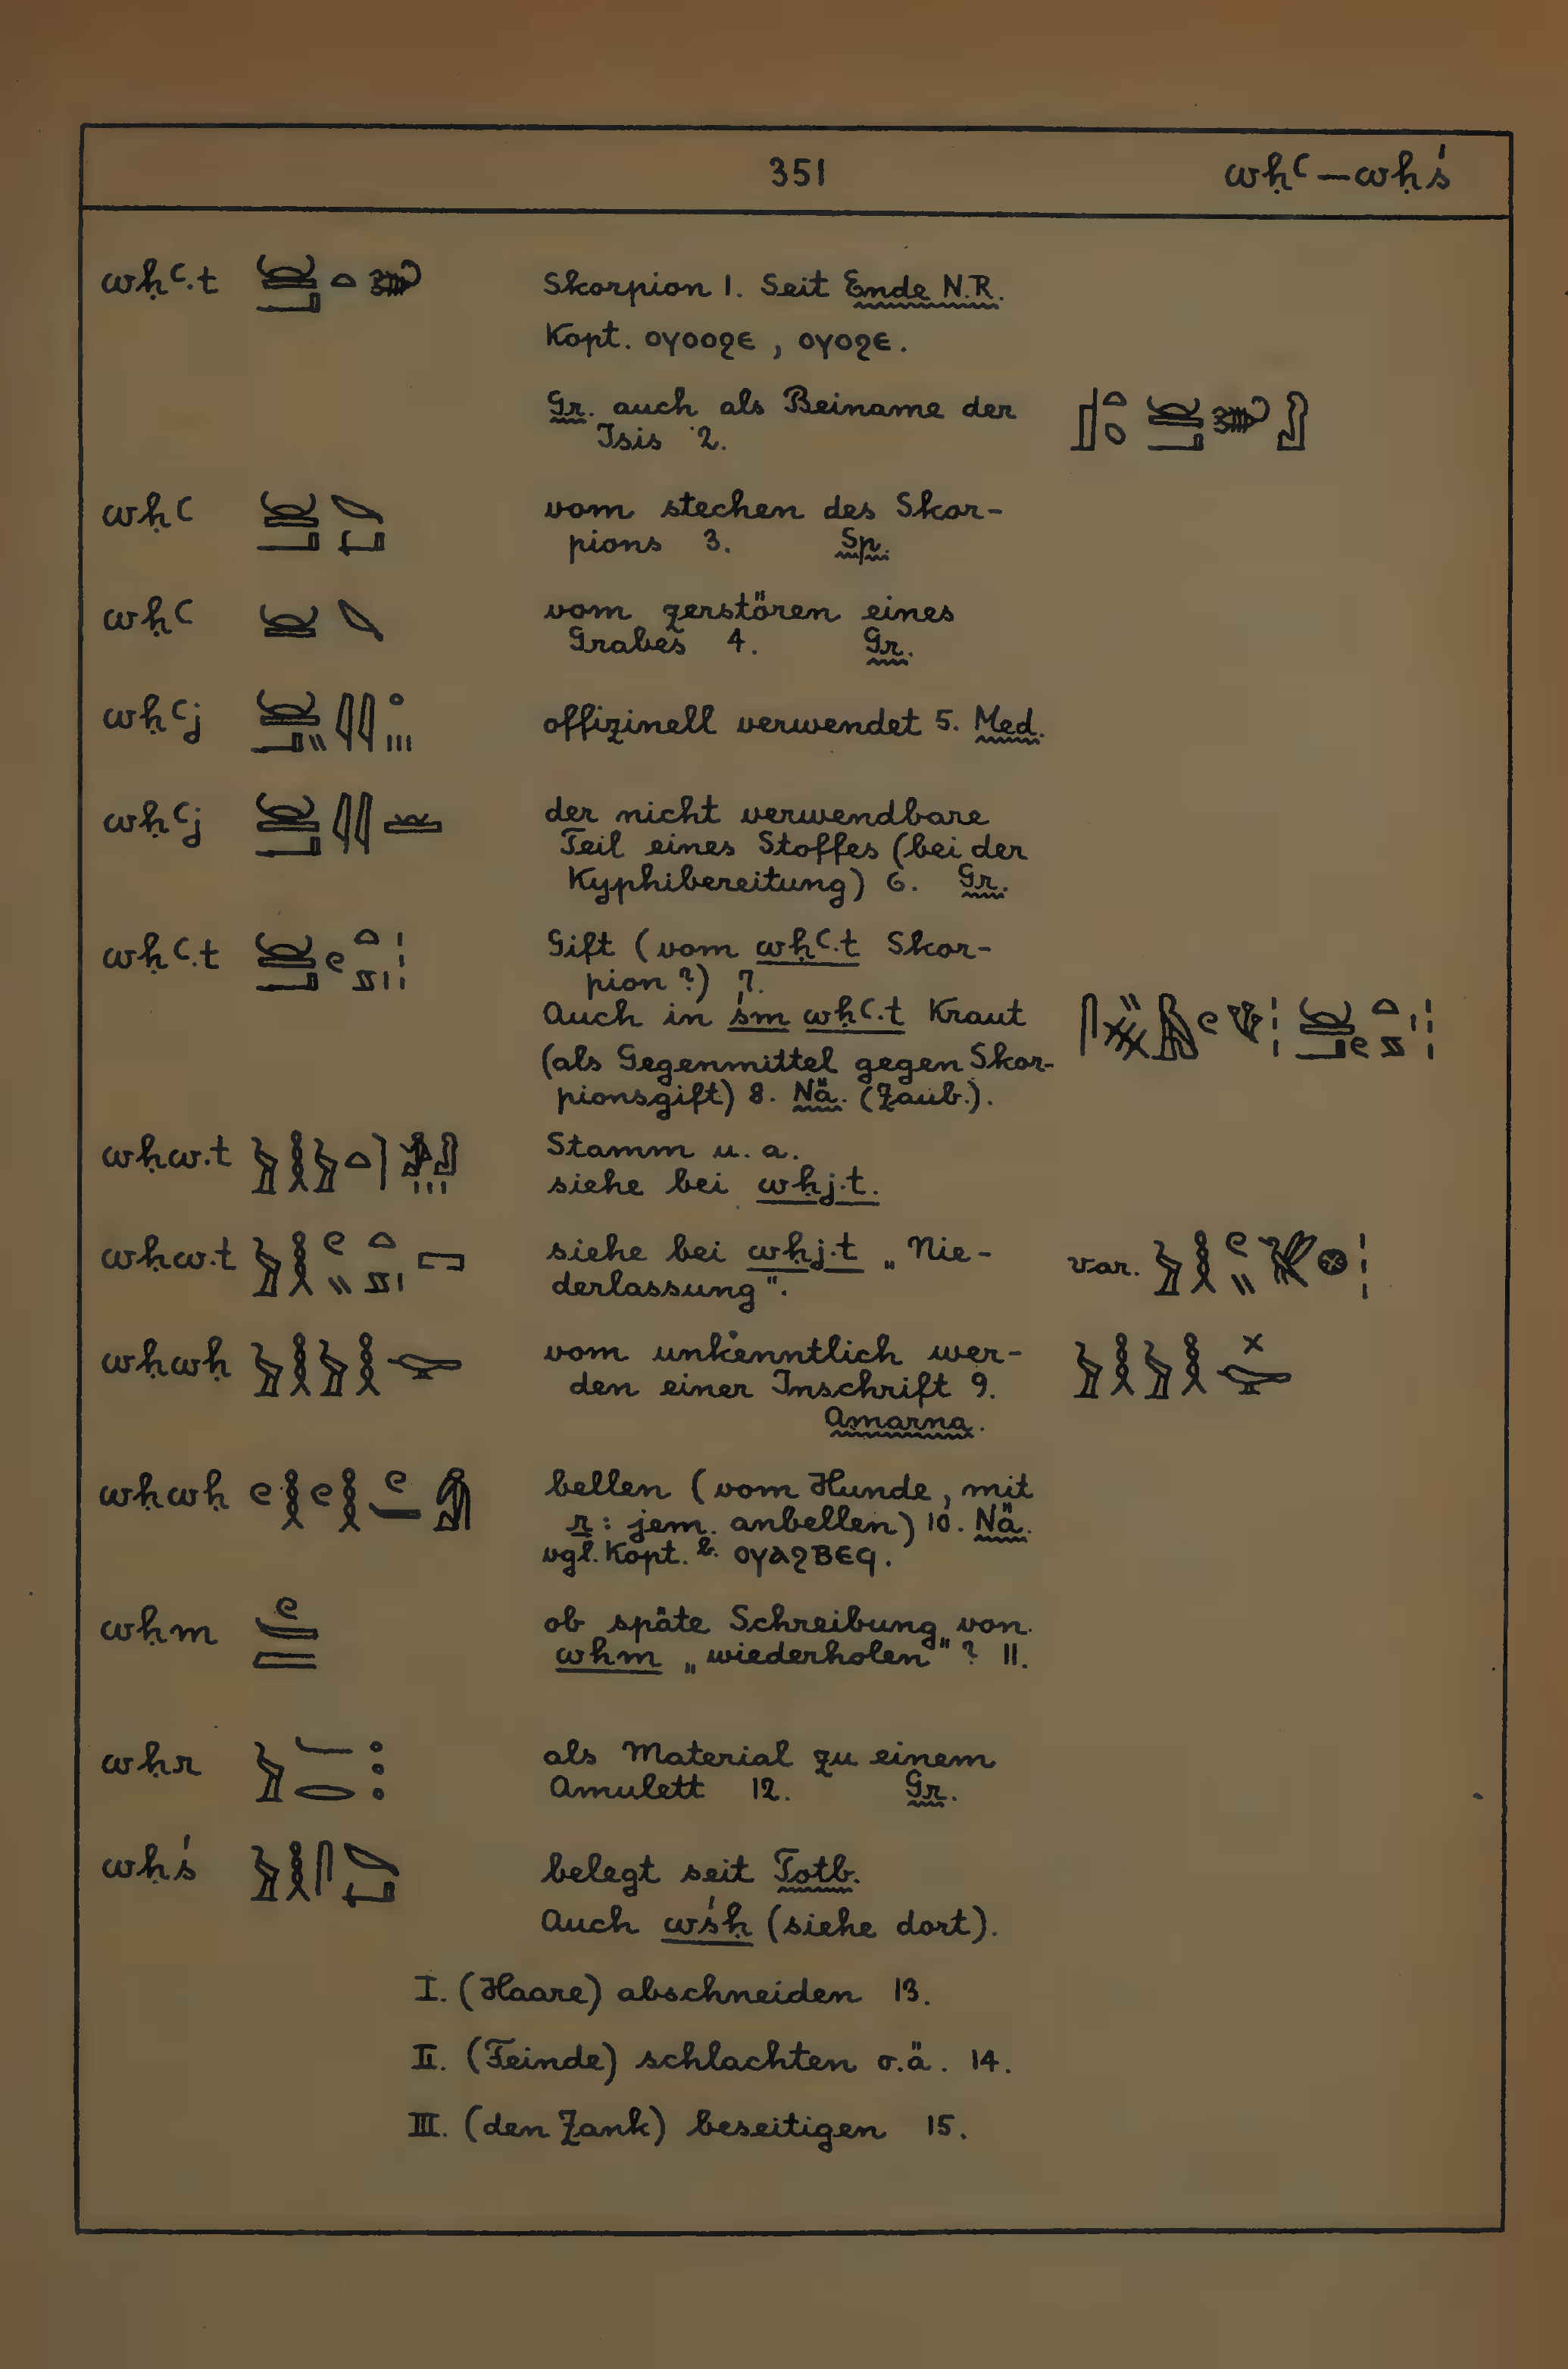 351
wḥꜥ—wḥś
wḥꜥ.t Skorpion 1. Seit Ende N.R.
Kopt. ⲟⲩⲟⲟϩⲉ, ⲟⲩⲟϩⲉ.
Gr. auch als Beiname der
Isis 2.
wḥꜥ vom stechen des Skor-
pions 3. Sp.
wḥꜥ vom zerstören eines
Grabes 4. Gr.
wḥꜥj offizinell verwendet 5. Med.
wḥꜥj der nicht verwendbare
Teil eines Stoffes (bei der
Kyphibereitung) 6. Gr.
wḥꜥ.t Gift (vom wḥꜥ.t Skor-
pion?) 7.
Auch in śm wḥꜥ.t Kraut
(als Gegenmittel gegen Skor-
pionsgift) 8. Nä. (Zaub.).
wḥw.t Stamm u. a.
siehe bei wḥj.t.
wḥw.t siehe bei wḥj.t „Nie- var.
derlassung".
wḥwḥ vom unkenntlich wer-
den einer Inschrift 9.
Amarna.
wḥwḥ bellen (vom Hunde, mit
r: jem. anbellen) 10. Nä.
vgl. Kopt. b. ⲟⲩⲁϩⲃⲉϥ.
wḥm ob späte Schreibung von
whm „wiederholen"? 11.
wḥr als Material zu einem
Amulett 12. Gr.
wḥś belegt seit Totb.
Auch wśḥ (siehe dort).
I. (Haare) abschneiden 13.
II. (Feinde) schlachten o.ä. 14.
III. (den Zank) beseitigen 15.